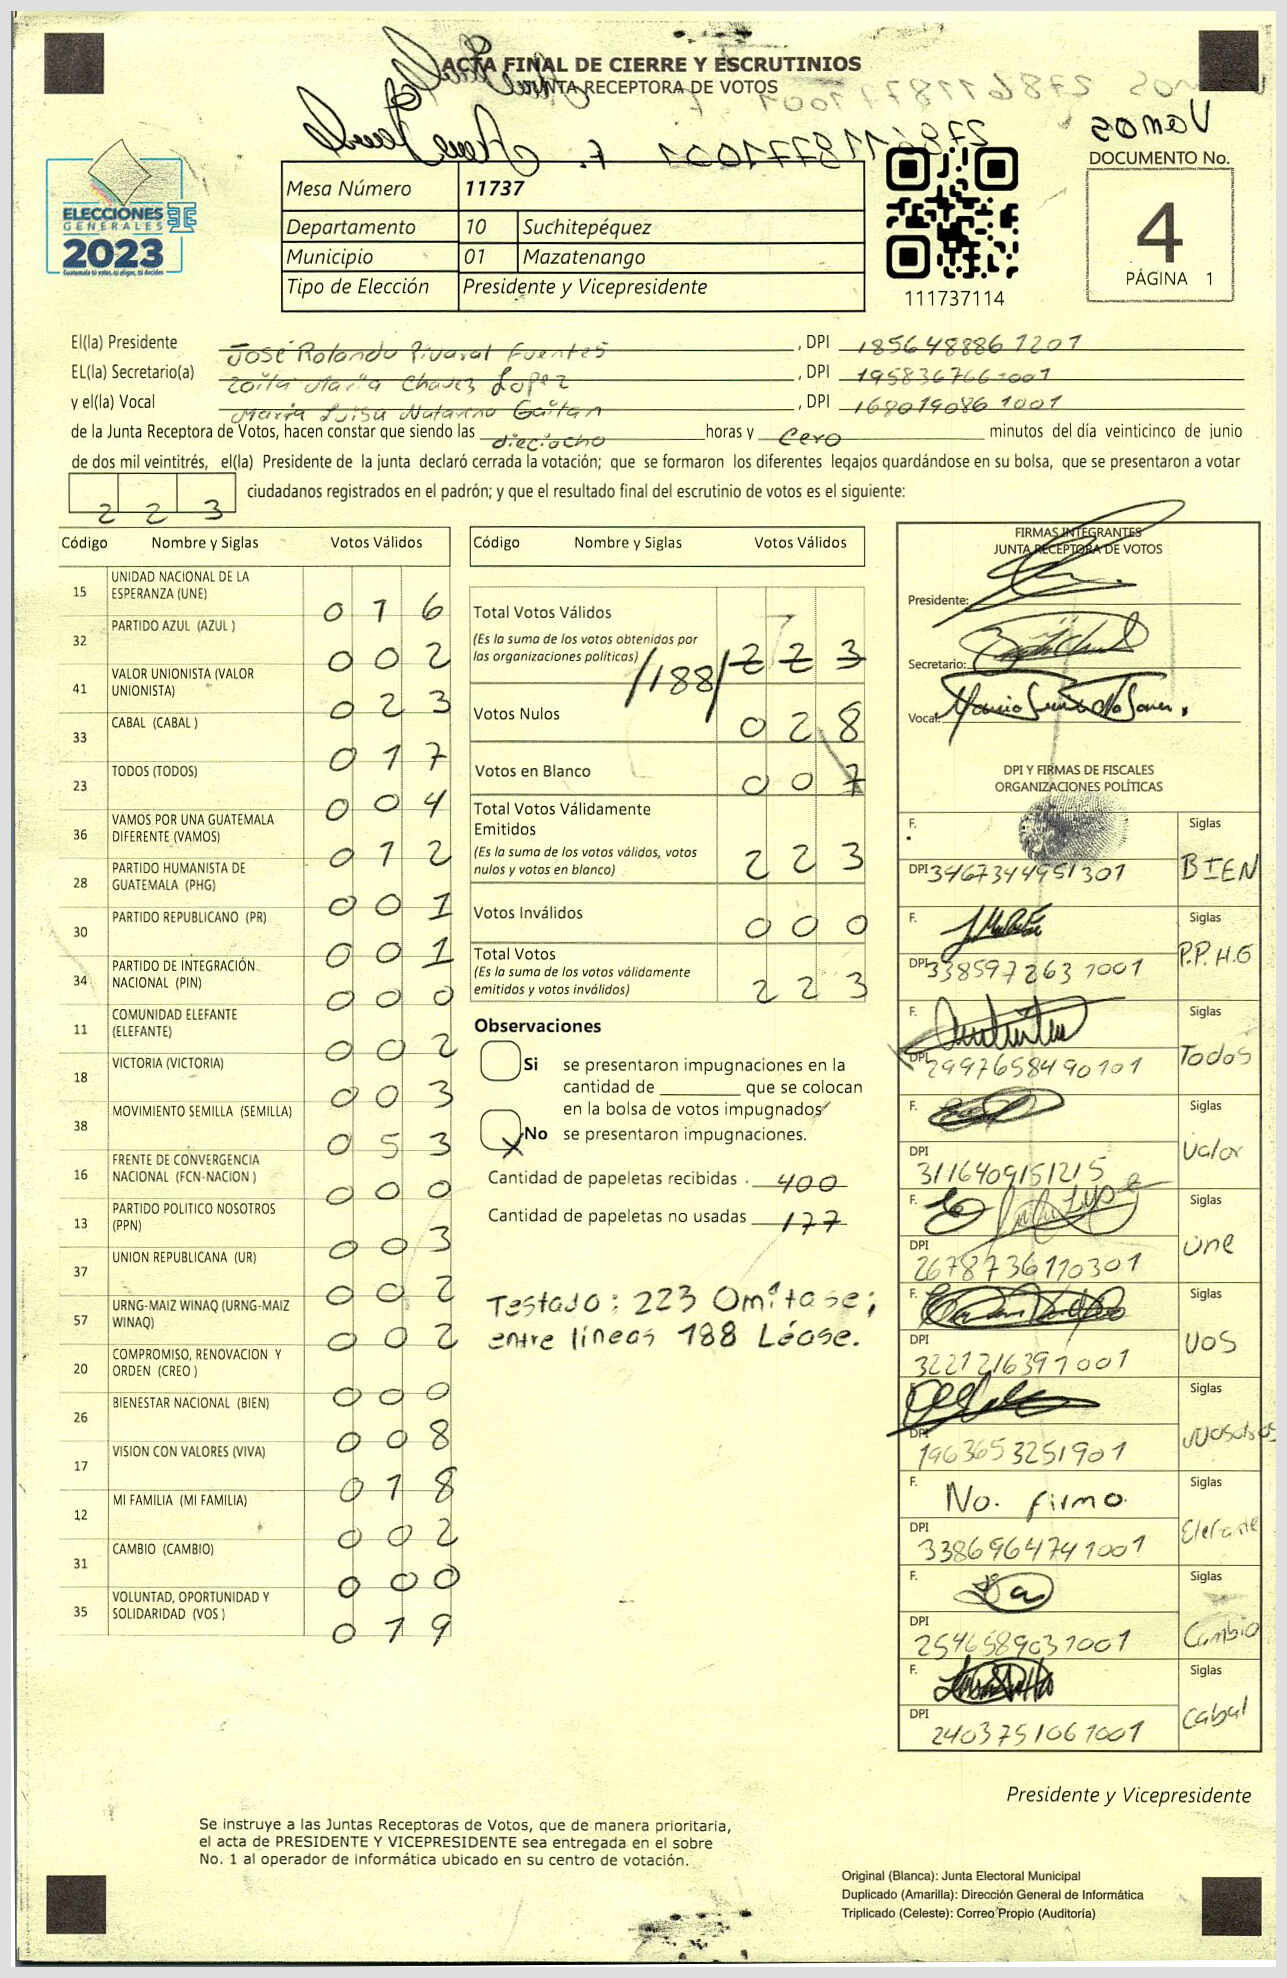 ACTA FINAL DE CIERRE Y ESCRUTINIOS
JUNTA RECEPTORA DE VOTOS
Vamos
ELECCIONES
GENERALES
2023
Guatemala tú votas, tú eliges, tú decides
Mesa Número 11737
Departamento 10 Suchitepéquez
Municipio 01 Mazatenango
Tipo de Elección Presidente y Vicepresidente
111737114
DOCUMENTO No.
4
PÁGINA 1
El(la) Presidente José Rolando Pivaral Fuentes, DPI 1856488861201
EL(la) Secretario(a) Zoila María Chavez Lopez, DPI 1958367661001
y el(la) Vocal María Luisa Natareno Gaitan, DPI 1680190861001
de la Junta Receptora de Votos, hacen constar que siendo las dieciocho horas y cero minutos del día veinticinco de junio
de dos mil veintitrés, el(la) Presidente de la junta declaró cerrada la votación; que se formaron los diferentes legajos guardándose en su bolsa, que se presentaron a votar
223 ciudadanos registrados en el padrón; y que el resultado final del escrutinio de votos es el siguiente:
Código Nombre y Siglas Votos Válidos
15 UNIDAD NACIONAL DE LA ESPERANZA (UNE) 016
32 PARTIDO AZUL (AZUL ) 002
41 VALOR UNIONISTA (VALOR UNIONISTA) 023
33 CABAL (CABAL ) 017
23 TODOS (TODOS) 004
36 VAMOS POR UNA GUATEMALA DIFERENTE (VAMOS) 012
28 PARTIDO HUMANISTA DE GUATEMALA (PHG) 001
30 PARTIDO REPUBLICANO (PR) 001
34 PARTIDO DE INTEGRACIÓN NACIONAL (PIN) 000
11 COMUNIDAD ELEFANTE (ELEFANTE) 002
18 VICTORIA (VICTORIA) 003
38 MOVIMIENTO SEMILLA (SEMILLA) 053
16 FRENTE DE CONVERGENCIA NACIONAL (FCN-NACION ) 000
13 PARTIDO POLITICO NOSOTROS (PPN) 003
37 UNION REPUBLICANA (UR) 002
57 URNG-MAIZ WINAQ (URNG-MAIZ WINAQ) 002
20 COMPROMISO, RENOVACION Y ORDEN (CREO ) 000
26 BIENESTAR NACIONAL (BIEN) 008
17 VISION CON VALORES (VIVA) 018
12 MI FAMILIA (MI FAMILIA) 002
31 CAMBIO (CAMBIO) 000
35 VOLUNTAD, OPORTUNIDAD Y SOLIDARIDAD (VOS ) 019
Código Nombre y Siglas Votos Válidos
Total Votos Válidos
(Es la suma de los votos obtenidos por
las organizaciones políticas) /188/ 223
Votos Nulos 028
Votos en Blanco 007
Total Votos Válidamente
Emitidos
(Es la suma de los votos válidos, votos
nulos y votos en blanco) 223
Votos Inválidos 000
Total Votos
(Es la suma de los votos válidamente
emitidos y votos inválidos) 223
Observaciones
Si se presentaron impugnaciones en la
cantidad de ________ que se colocan
en la bolsa de votos impugnados
X No se presentaron impugnaciones.
Cantidad de papeletas recibidas 400
Cantidad de papeletas no usadas 177
Testado: 223 Omítase;
entre líneas 188 Léase.
FIRMAS INTEGRANTES
JUNTA RECEPTORA DE VOTOS
Presidente:
Secretario:
Vocal:
DPI Y FIRMAS DE FISCALES
ORGANIZACIONES POLÍTICAS
F. Siglas
DPI 3467344951301 BIEN
F. Siglas
DPI 3385972631001 P.P.H.G
F. Siglas
DPI 2997658490101 Todos
F. Siglas
DPI 3116409151215 Valor
F. Siglas
DPI 2678736110301 Une
F. Siglas
DPI 3221216391001 VOS
F. Siglas
DPI 1963653251901 Nosotros
F. No. firmo. Siglas
DPI 3386964741001 Elefante
F. Siglas
DPI 2546589031001 Cambio
F. Siglas
DPI 2403751061001 Cabal
Presidente y Vicepresidente
Se instruye a las Juntas Receptoras de Votos, que de manera prioritaria,
el acta de PRESIDENTE Y VICEPRESIDENTE sea entregada en el sobre
No. 1 al operador de informática ubicado en su centro de votación.
Original (Blanca): Junta Electoral Municipal
Duplicado (Amarilla): Dirección General de Informática
Triplicado (Celeste): Correo Propio (Auditoría)